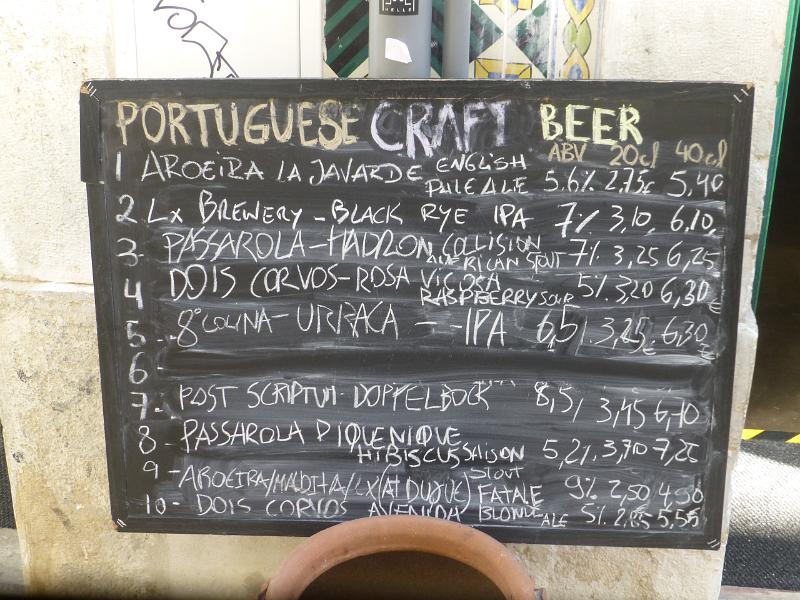 PORTUGUESE CRAFT BEER
ABV 20cl 40cl
1 AROEIRA LA JAVARDE ENGLISH PALE ALE 5.6% 2,75€ 5,40
2- LX BREWERY - BLACK RYE IPA 7% 3,10, 6,10,
3- PASSAROLA-HADRON COLLISION AMERICAN STOUT 7% 3,25 6,25
4 DOIS CORVOS-ROSA VIÇOSA RASPBERRY SOUR 5% 3,20 6,30€
5- 8ª COLINA - URRACA - -IPA 6,5 3,25 6,30€
6-
7- POST SCRIPTUM-DOPPELBOCK 8,5% 3,45 6,70
8- PASSAROLA PIQUENIQUE HIBISCUS SAISON 5,2% 3,70 7,20
9-AROEIRA/MALDITA/LX FATALE STOUT 9% 2,50 4,90
10- DOIS CORVOS AVENIDA BLONDE ALE 5% 2,85 5,55